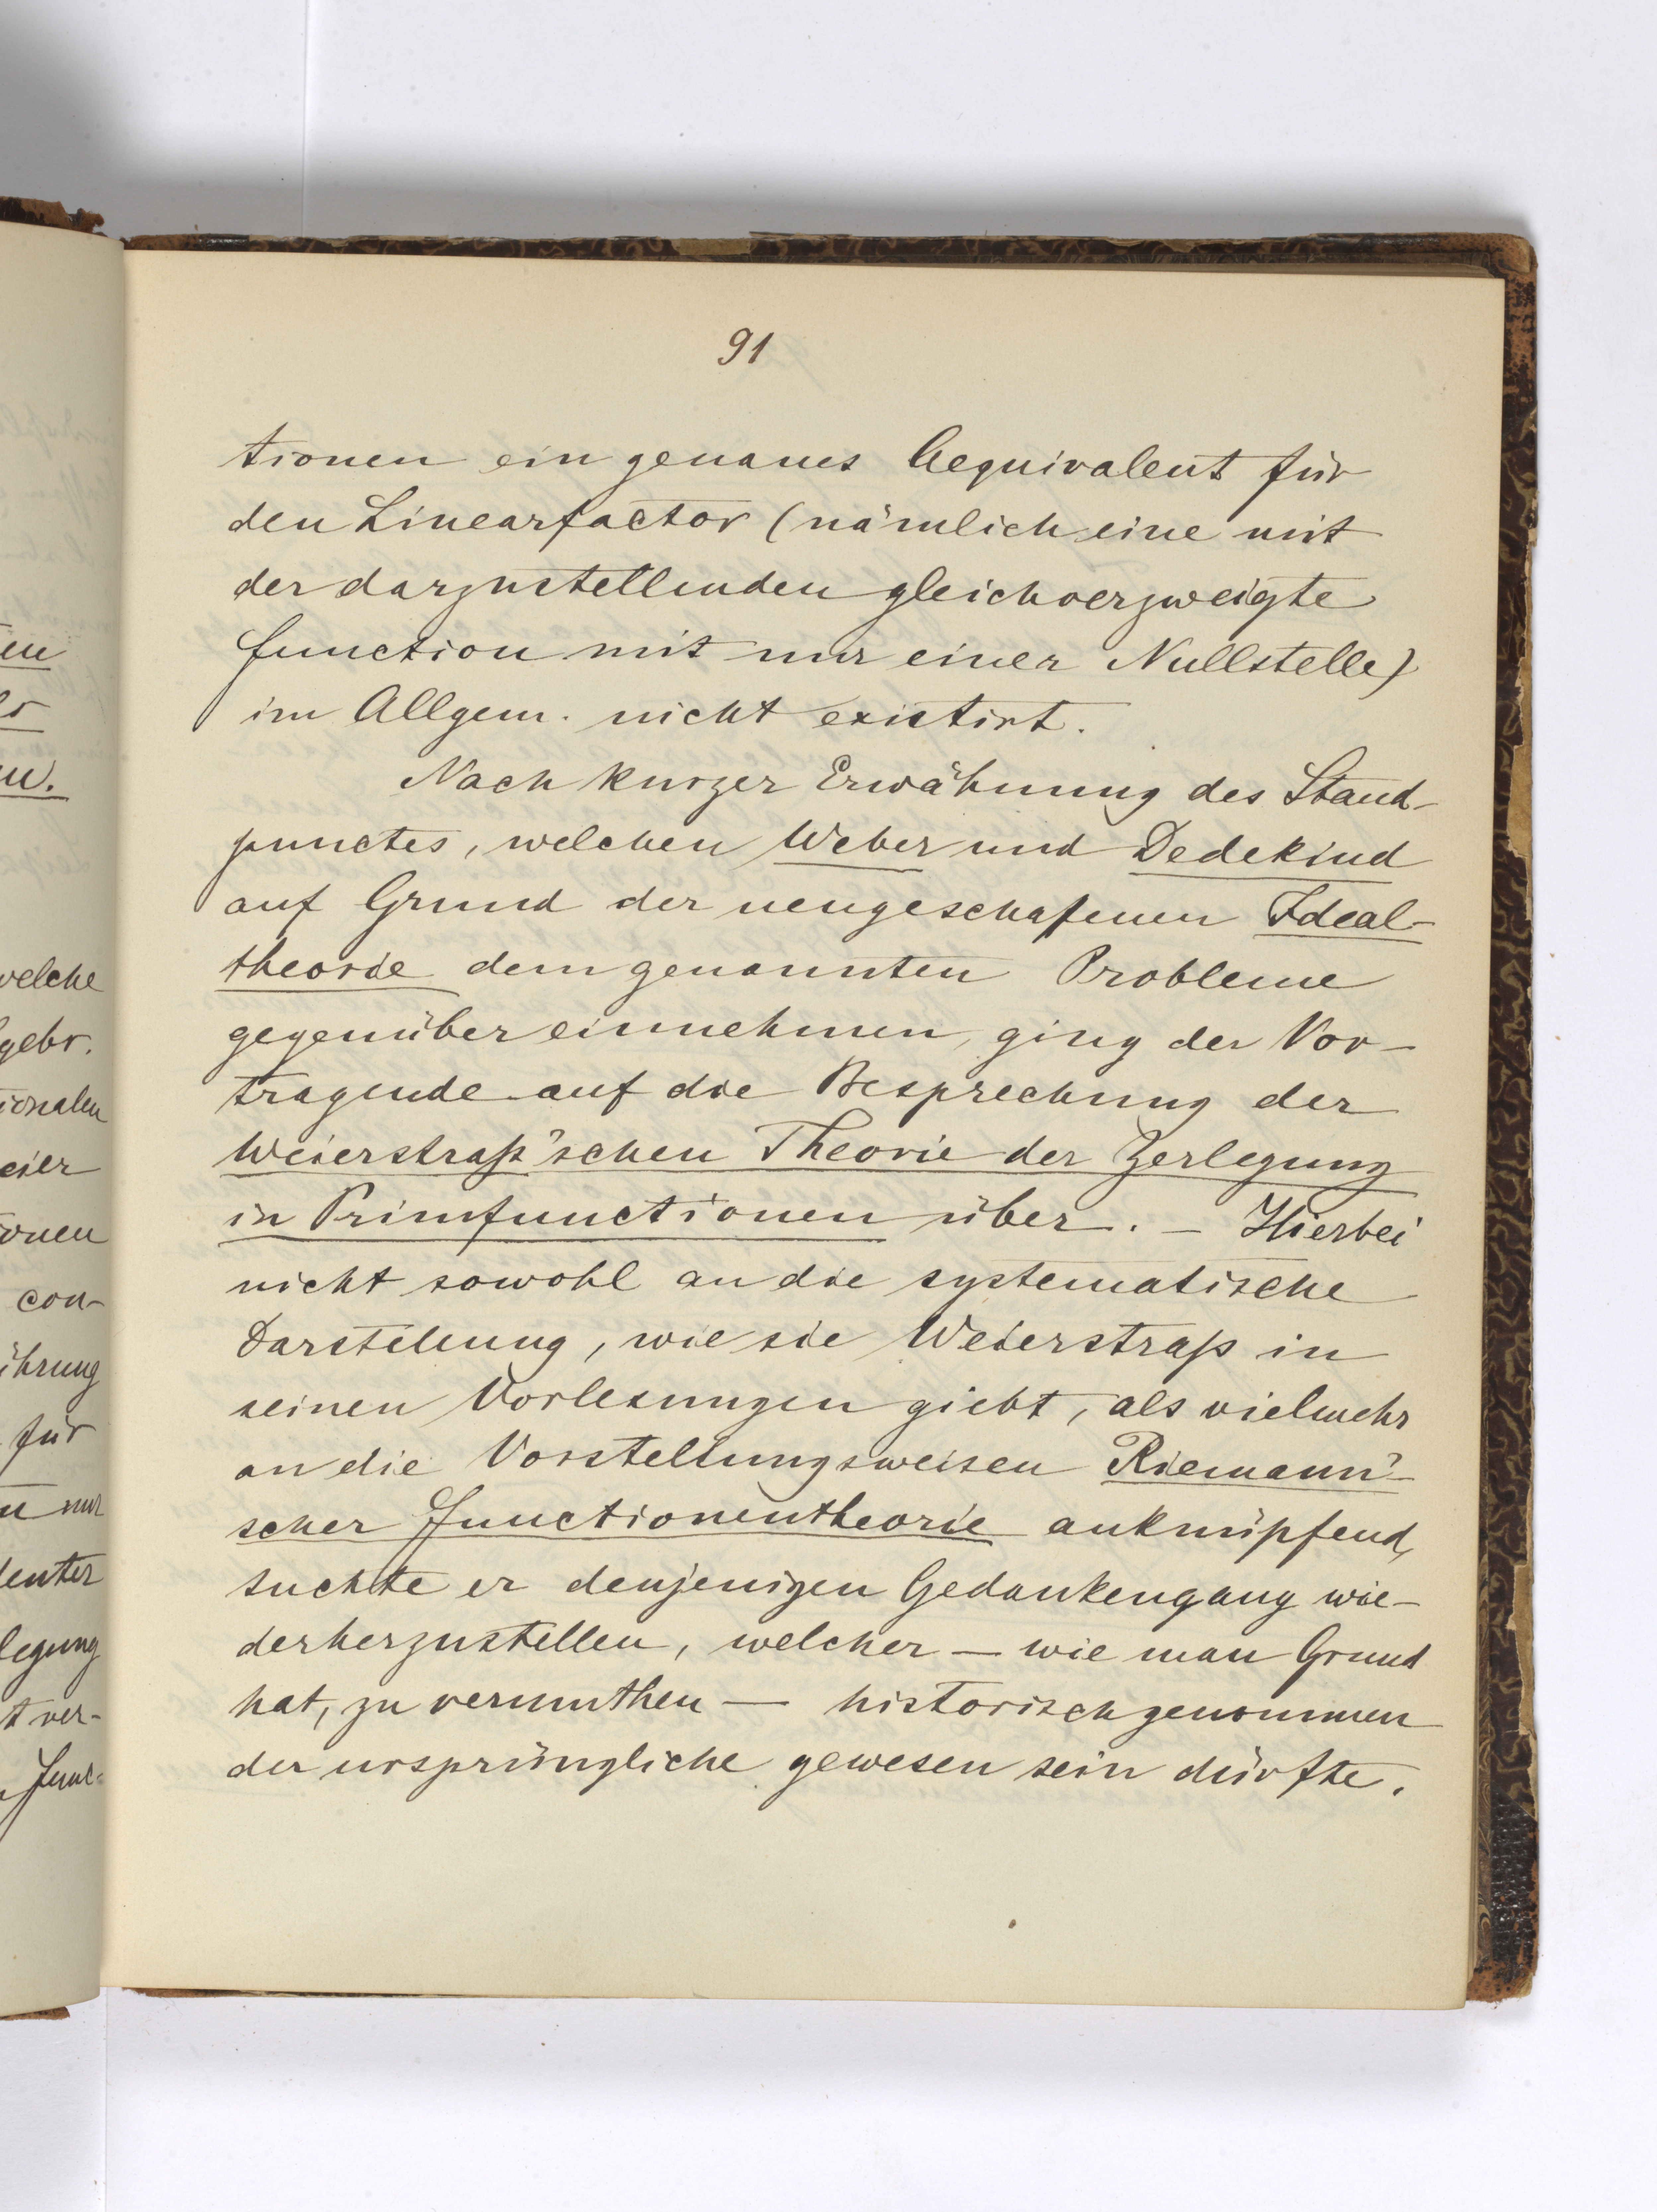 91
tionen ein genaues Aequivalent für
den Linearfactor (nämlich eine mit
der darzustellenden gleichverzweigte
Function mit nur einer Nullstelle)
im Allgem. nicht existirt.
Nach kurzer Erwähnung des Stand-
punctes, welchen Weber und Dedekind
auf Grund der neugeschafenen Ideal-
theorie dem genannten Probleme
gegenüber einnehmen, ging der Vor-
tragende auf die Besprechung der
Weierstraß'schen Theorie der Zerlegung
in Primfunctionen über. – Hierbei
nicht sowohl an die systematische
Darstellung, wie sie Weierstraß in
seinen Vorlesungen giebt, als vielmehr
an die Vorstellungsweisen Riemann'-
scher Functionentheorie anknüpfend,
suchte er denjenigen Gedankengang wie-
derherzustellen, welcher — wie man Grund
hat, zu vermuthen — historisch genommen
der ursprüngliche gewesen sein dürfte.
welche
gebr.
ionalen
eier
onen
con-
ührung
für
nur
legung
t ver-
Func-